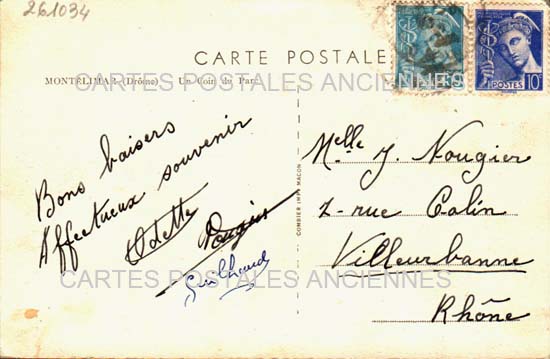 261034
CARTE POSTALE
MONTÉLIMAR (Drôme) Un Coin du Parc
CARTES POSTALES ANCIENNES
POSTES 10c
Bons baisers
Affectueux souvenir
Odette
COMBIER IMP. MACON
Melle J. Nougier
1 rue Colin
Villeurbanne
Rhône
CARTES POSTALES ANCIENNES